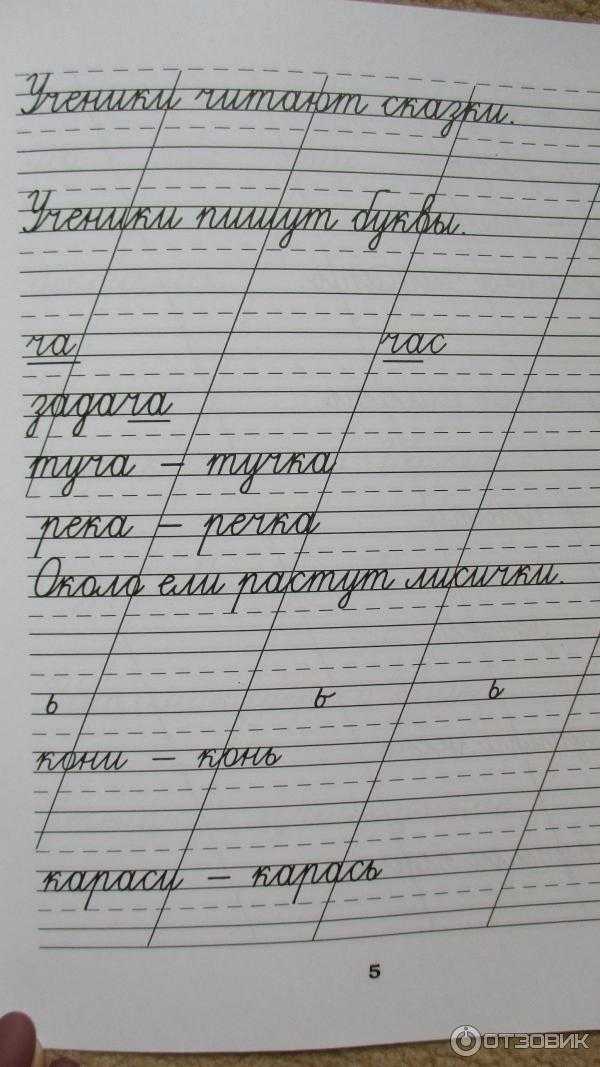 Ученики читают сказки.
Ученики пишут буквы.
ча час
задача
туча – тучка
река – речка
Около ели растут лисички.
ь ь ь
кони – конь
караси – карась
5
ОТЗОВИК